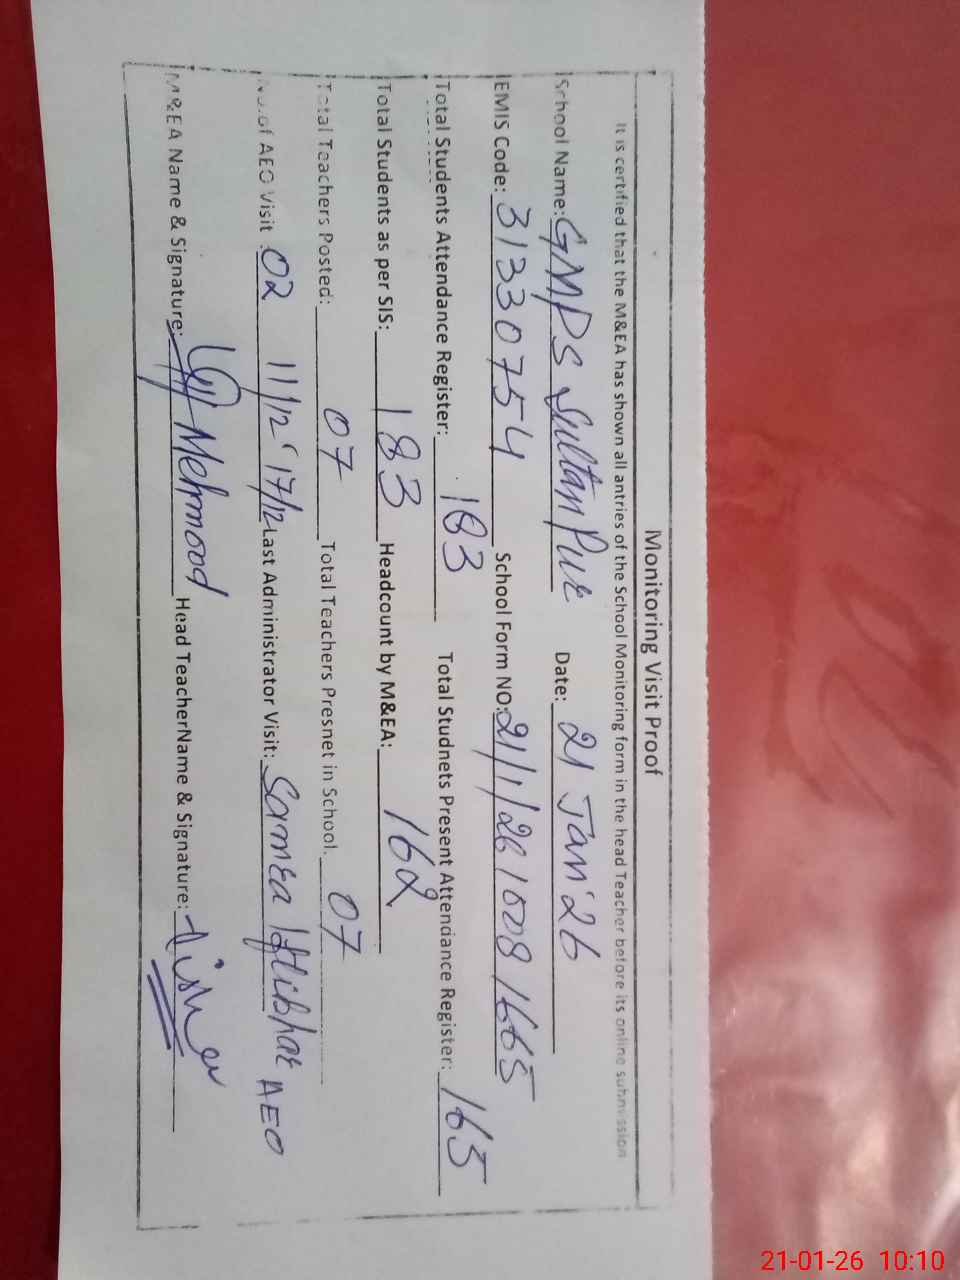 Monitoring Visit Proof
It is certified that the M&EA has shown all antries of the School Monitoring form in the head Teacher before its online submission
School Name: GMPS Sultan Pur Date: 21 Jan'26
EMIS Code: 31330754 School Form NO: 21/1/26/008/665
Total Students Attendance Register: 183 Total Studnets Present Attendance Register: 165
Total Students as per SIS: 183 Headcount by M&EA: 162
Total Teachers Posted: 07 Total Teachers Presnet in School. 07
No. of AEO Visit 02 11/12 '17/12 Last Administrator Visit: Samea Iftikhar AEO
M&EA Name & Signature: Mehmood Head TeacherName & Signature:
21-01-26 10:10